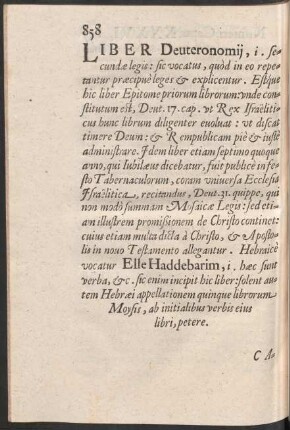 858
LIBER Deuteronomij, i. se-
cundæ legis: sic vocatus, quòd in eo repe-
tuntur præcipuè leges & explicentur. Estque
hic liber Epitome priorum librorum: vnde con-
stitutum est, Deut. 17. cap. vt Rex Israëliti-
cus hunc librum diligenter euoluat: vt discat
timere Deum: & Rempublicam piè & iustè
administrare. Idem liber etiam septimo quoque
anno, qui Iubilæus dicebatur, fuit publicè in fe-
sto Tabernaculorum, coram vniuersa Ecclesia
Israëlitica, recitandus, Deut. 31. quippe, qui
non modò summam Mosaicæ Legis: sed eti-
am illustrem promissionem de Christo continet:
cuius etiam multa dicta à Christo, & Aposto-
lis in nouo Testamento allegantur. Hebraicè
vocatur Elle Haddebarim, i. hæc sunt
verba, &c. sic enim incipit hic liber: solent au-
tem Hebræi appellationem quinque librorum
Moysis, ab initialibus verbis eius
libri, petere.
C A-